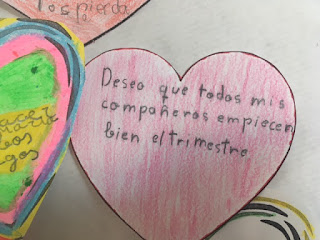 los pierda
Deseo que todos mis
compañeros empiecen
bien el trimestre